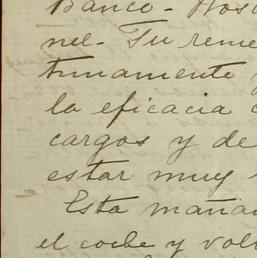 Banco - Ros
nel - Tu reme
tunamente y
la eficacia
cargos y de
estar muy
Esta mañan
el coche y vol